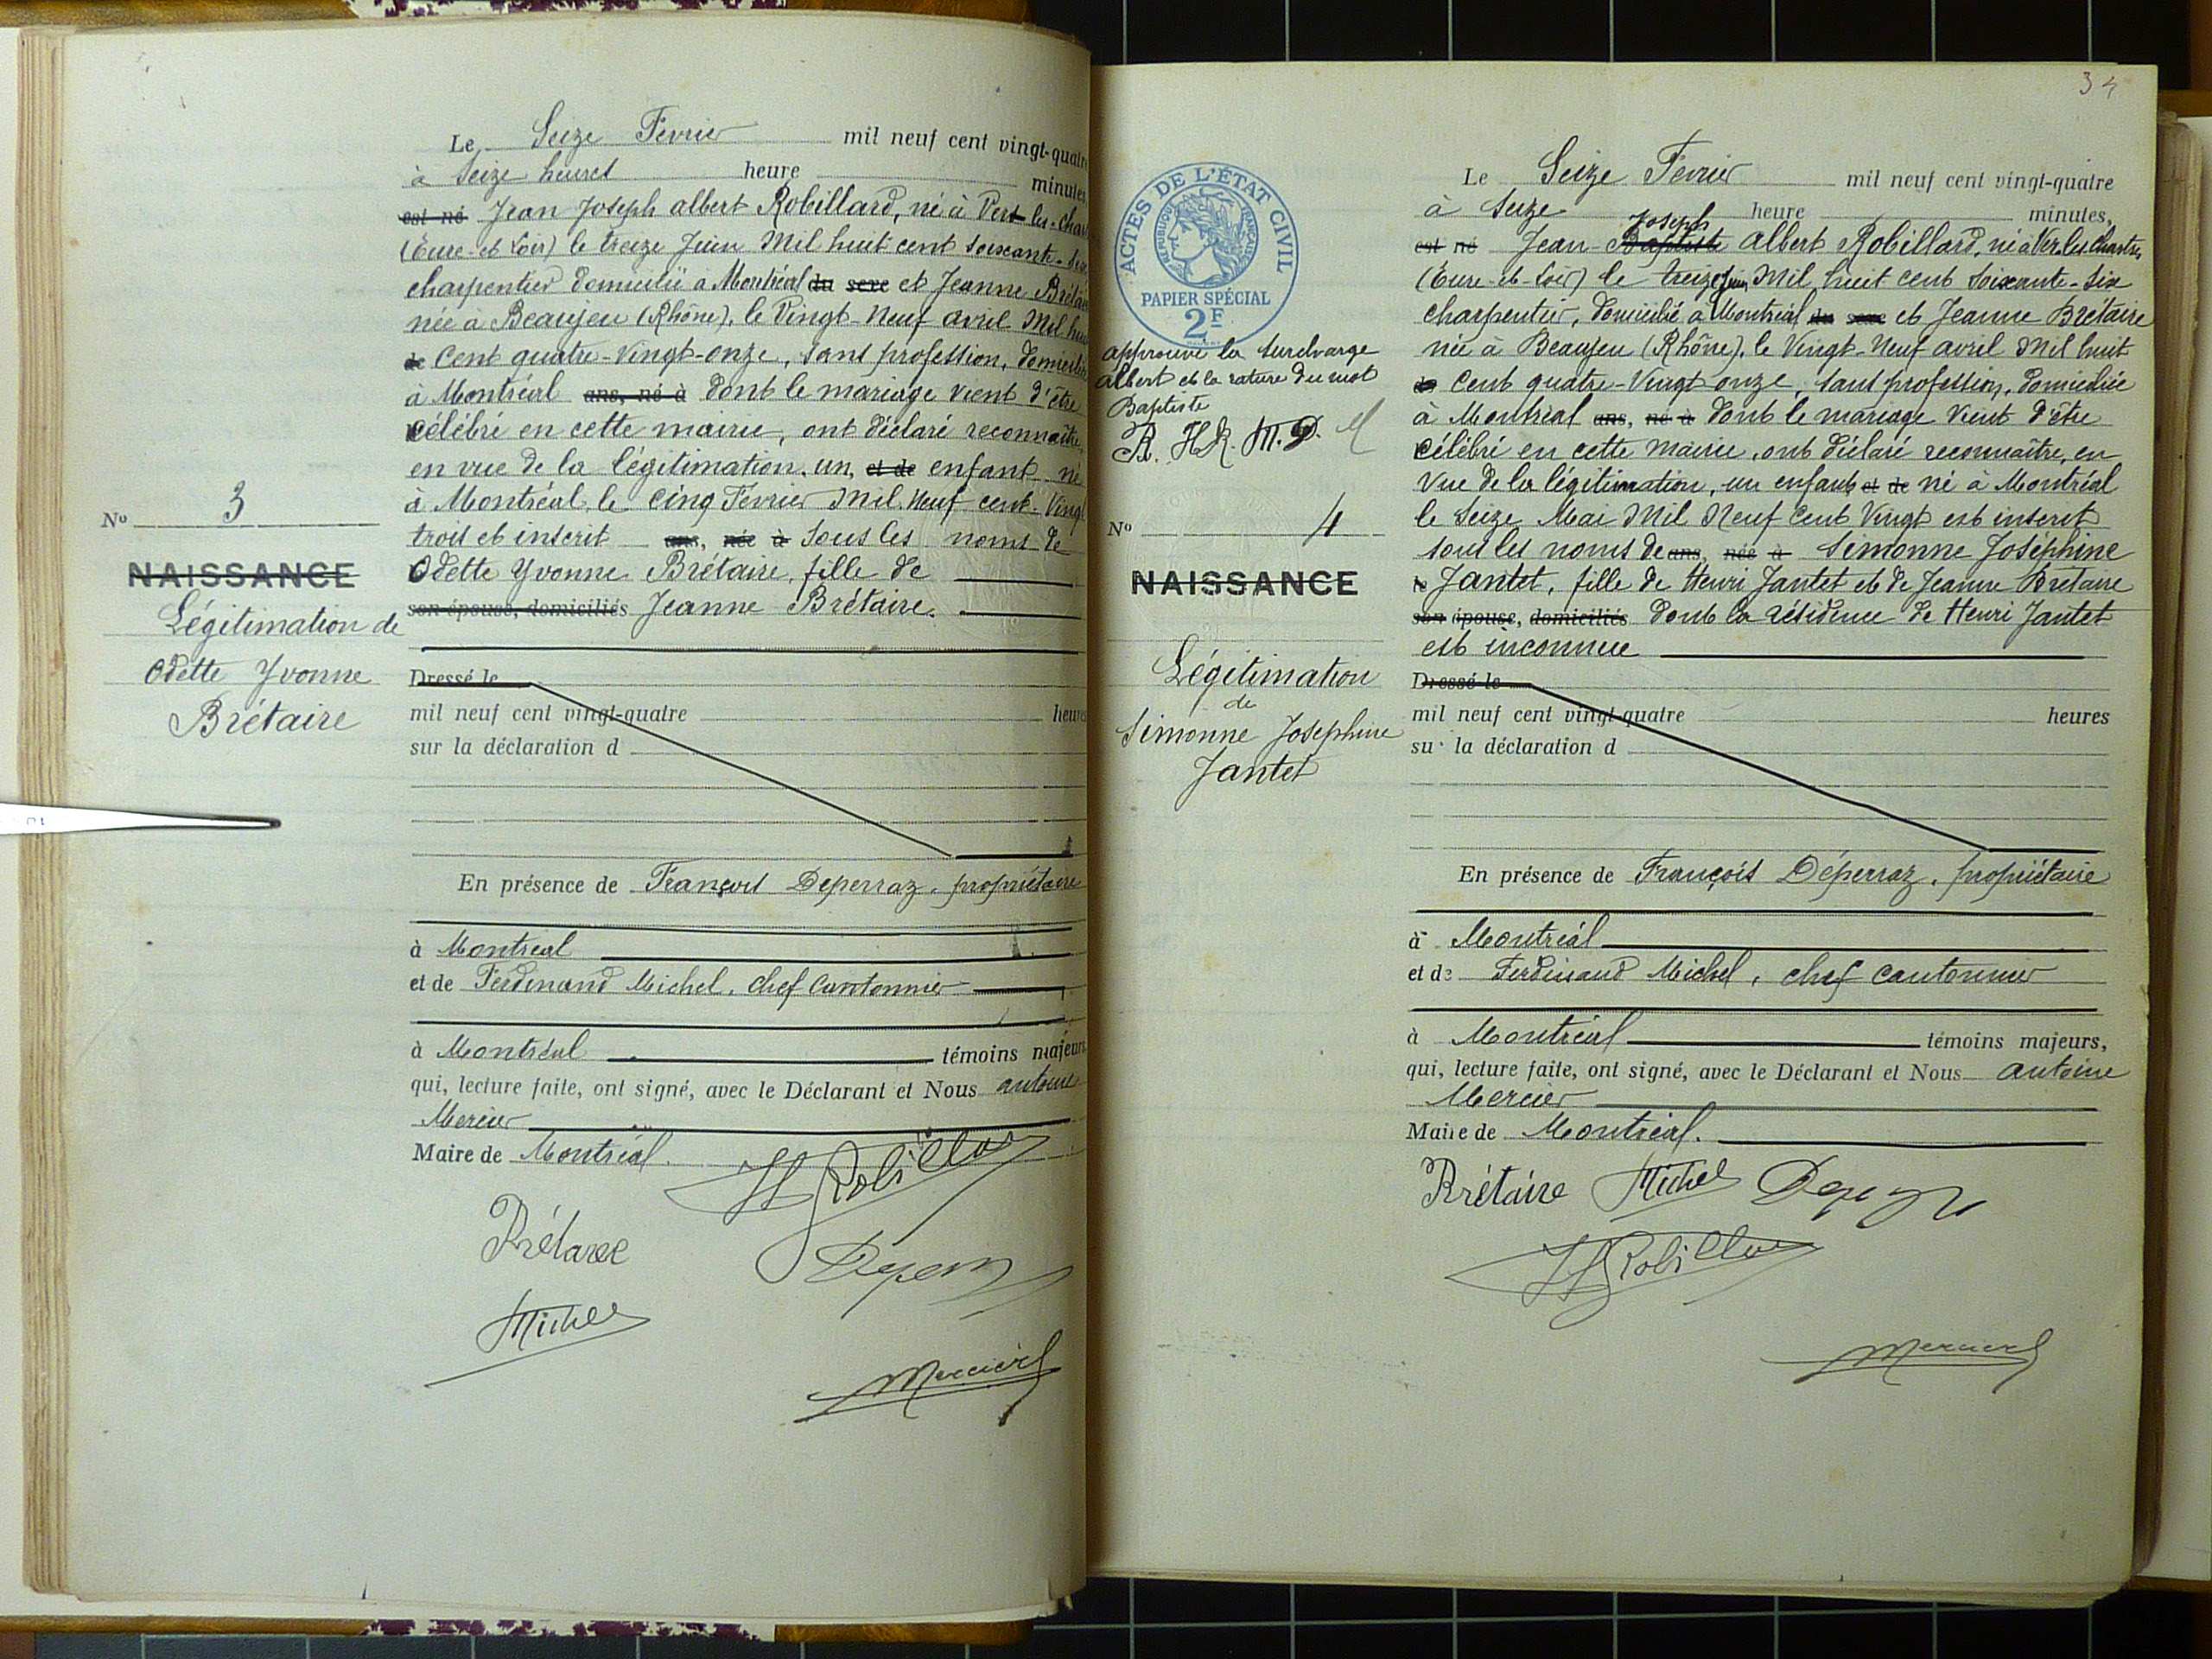 Le Seize Fevrier mil neuf cent vingt-quatre
à Seize heures heure minutes
est né Jean Joseph albert Robillard, né à Vert-les-Char
(Eure-et-Loir) le treize Juin Mil huit cent soixante-six
charpentier domicilié à Montréal du sexe et Jeanne Brétaire
née à Beaujeu (Rhône), le Vingt-Neuf avril Mil huit
de Cent quatre-Vingt-onze, sans profession, domiciliée
à Montréal ans, né à dont le mariage vient d'être
célébré en cette mairie, ont déclaré reconnaître,
en vue de la légitimation, un, et de enfant né
à Montréal, le Cinq Février Mil Neuf cent Vingt
trois et inscrit ans, née à Sous les noms de
Odette Yvonne Brétaire, fille de
son épouse, domiciliés Jeanne Brétaire.
No 3
NAISSANCE
Légitimation de
Odette Yvonne
Brétaire
Dressé le
mil neuf cent vingt-quatre heures
sur la déclaration d
En présence de François Deperraz, propriétaire
à Montréal
et de Ferdinand Michel, Chef Cantonnier
à Montréal témoins majeurs
qui, lecture faite, ont signé, avec le Déclarant et Nous antoine
Mercier
Maire de Montréal.
Robillard
Brétaire
Michel
Mercier
34
ACTES DE L'ÉTAT CIVIL
RÉPUBLIQUE FRANÇAISE
PAPIER SPÉCIAL
2F
approuvé la surcharge
albert et la rature du mot
Baptiste
R. H.R. M. D. M
No 4
NAISSANCE
Légitimation
de
Simonne Josephine
Jantet
Le Seize Fevrier mil neuf cent vingt-quatre
à Seize heure minutes,
Joseph
est né Jean-Baptiste albert Robillard, né à Ver les Chartres
(Eure-et-Loir) le treize Juin Mil huit cent soixante-six
charpentier, domicilié à Montréal du sexe et Jeanne Brétaire
née à Beaujeu (Rhône), le Vingt-Neuf avril Mil huit
de Cent quatre-Vingt onze, sans profession, domiciliée
à Montréal ans, né à dont le mariage vient d'être
célébré en cette mairie, ont déclaré reconnaître, en
Vue de la légitimation, un enfant et de né à Montréal
le Seize Mai Mil Neuf Cent Vingt est inscrit
sous les noms de ans, née à Simonne Joséphine
le Jantet, fille de Henri Jantet et de Jeanne Bretaire
son épouse, domiciliés dont la résidence de Henri Jantet
est inconnue
Dressé le
mil neuf cent vingt-quatre heures
sur la déclaration d
En présence de François Déperraz, propriétaire
à Montréal
et de Ferdinand Michel, chef cantonnier
à Montréal témoins majeurs,
qui, lecture faite, ont signé, avec le Déclarant et Nous antoine
Mercier
Maire de Montréal.
Brétaire Michel
Robillard
Mercier